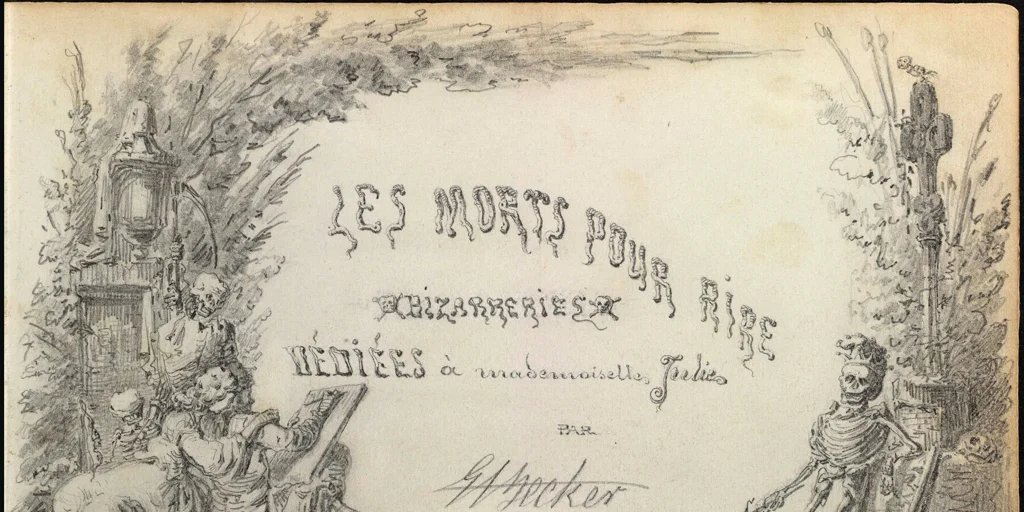 LES MORTS POUR RIRE
BIZARRERIES
DÉDIÉES à mademoiselle Julie
PAR